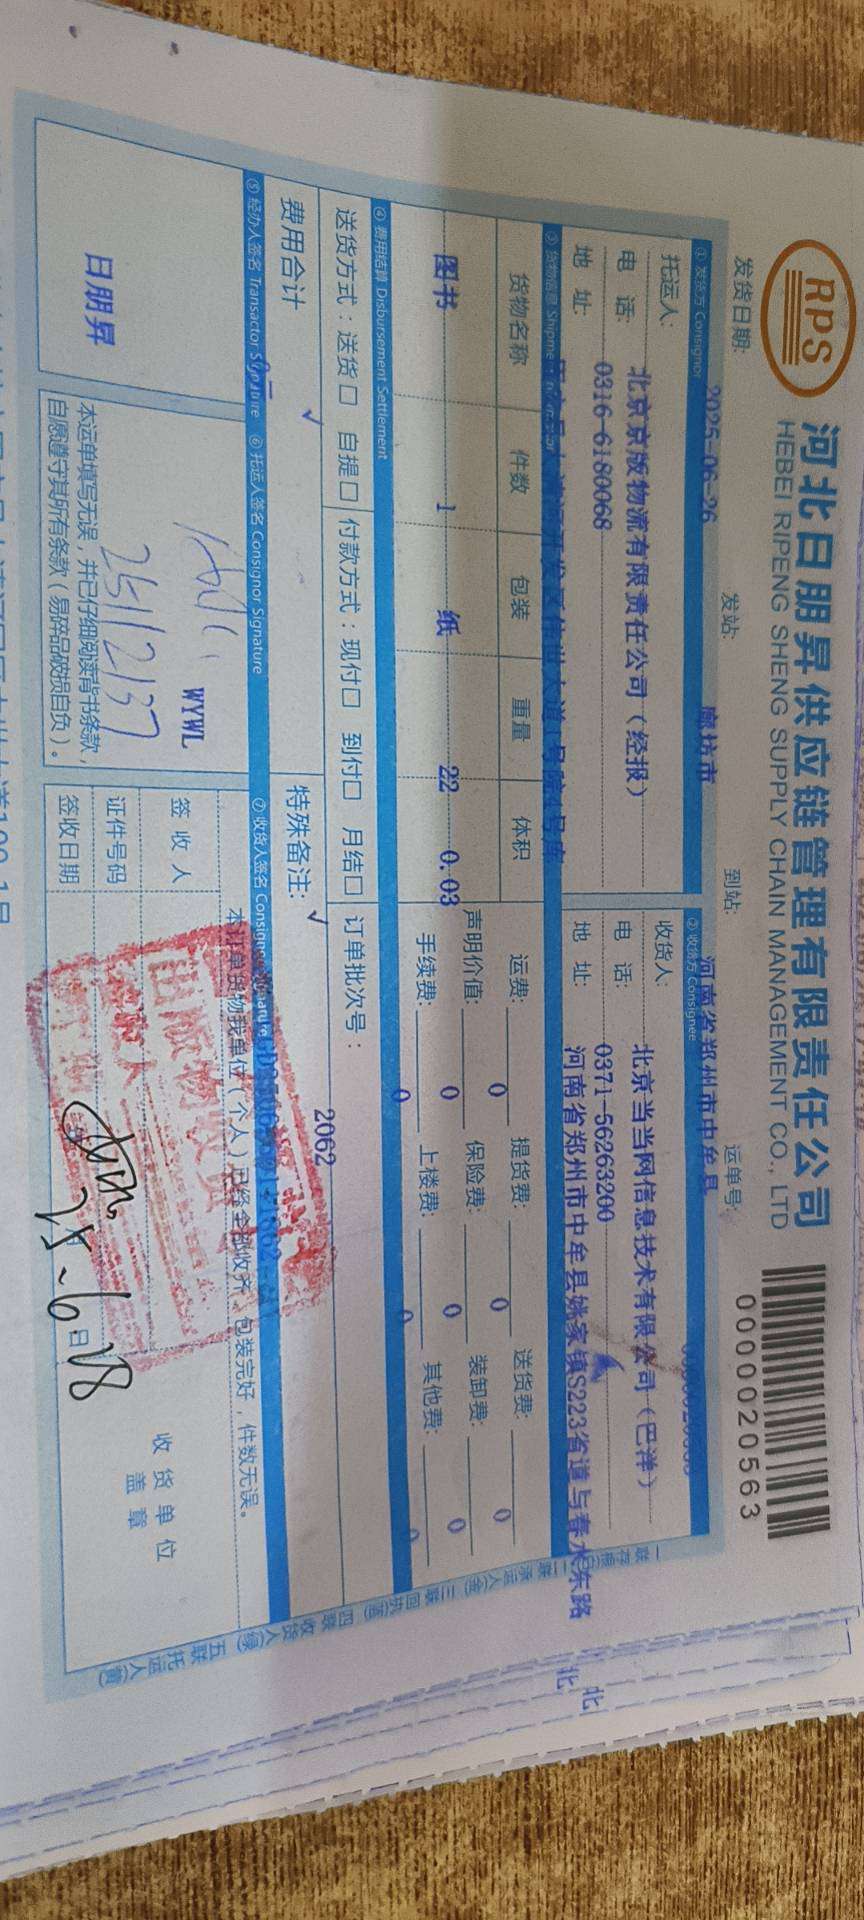 RPS
河北日朋昇供应链管理有限责任公司
HEBEI RIPENG SHENG SUPPLY CHAIN MANAGEMENT CO., LTD
0000020563
发货日期: 2025-06-26 发站: 廊坊市 到站: 河南省郑州市中牟县 运单号:
① 发货方 Consignor ② 收货方 Consignee
托运人: 北京京版物流有限责任公司（经报） 收货人: 北京当当网信息技术有限公司（巴洋）
电 话: 0316-6180068 电 话: 0371-56263200
地 址: 地 址: 河南省郑州市中牟县姚家镇S223省道与春水东路
北
北
③ 货物信息
货物名称 件数 包装 重量 体积 运费: 0 提货费: 0 送货费: 0
图书 1 纸 22 0.03 声明价值: 0 保险费: 0 装卸费: 0
手续费: 0 上楼费: 0 其他费: 0
④ 费用结算 Disbursement Settlement
送货方式：送货□ 自提□ 付款方式：现付□ 到付□ 月结□ 订单批次号：
2062
费用合计 特殊备注:
⑤ 经办人签名 Transactor Signature ⑥ 托运人签名 Consignor Signature ⑦ 收货人签名
本订单货物我单位（个人）已经全部收齐，包装完好，件数无误。
日朋昇
WYWL
签 收 人
证件号码
签收日期
收货单位
盖 章
本运单填写无误，并已仔细阅读背书条款，
自愿遵守其所有条款（易碎品破损自负）。
25-6 28